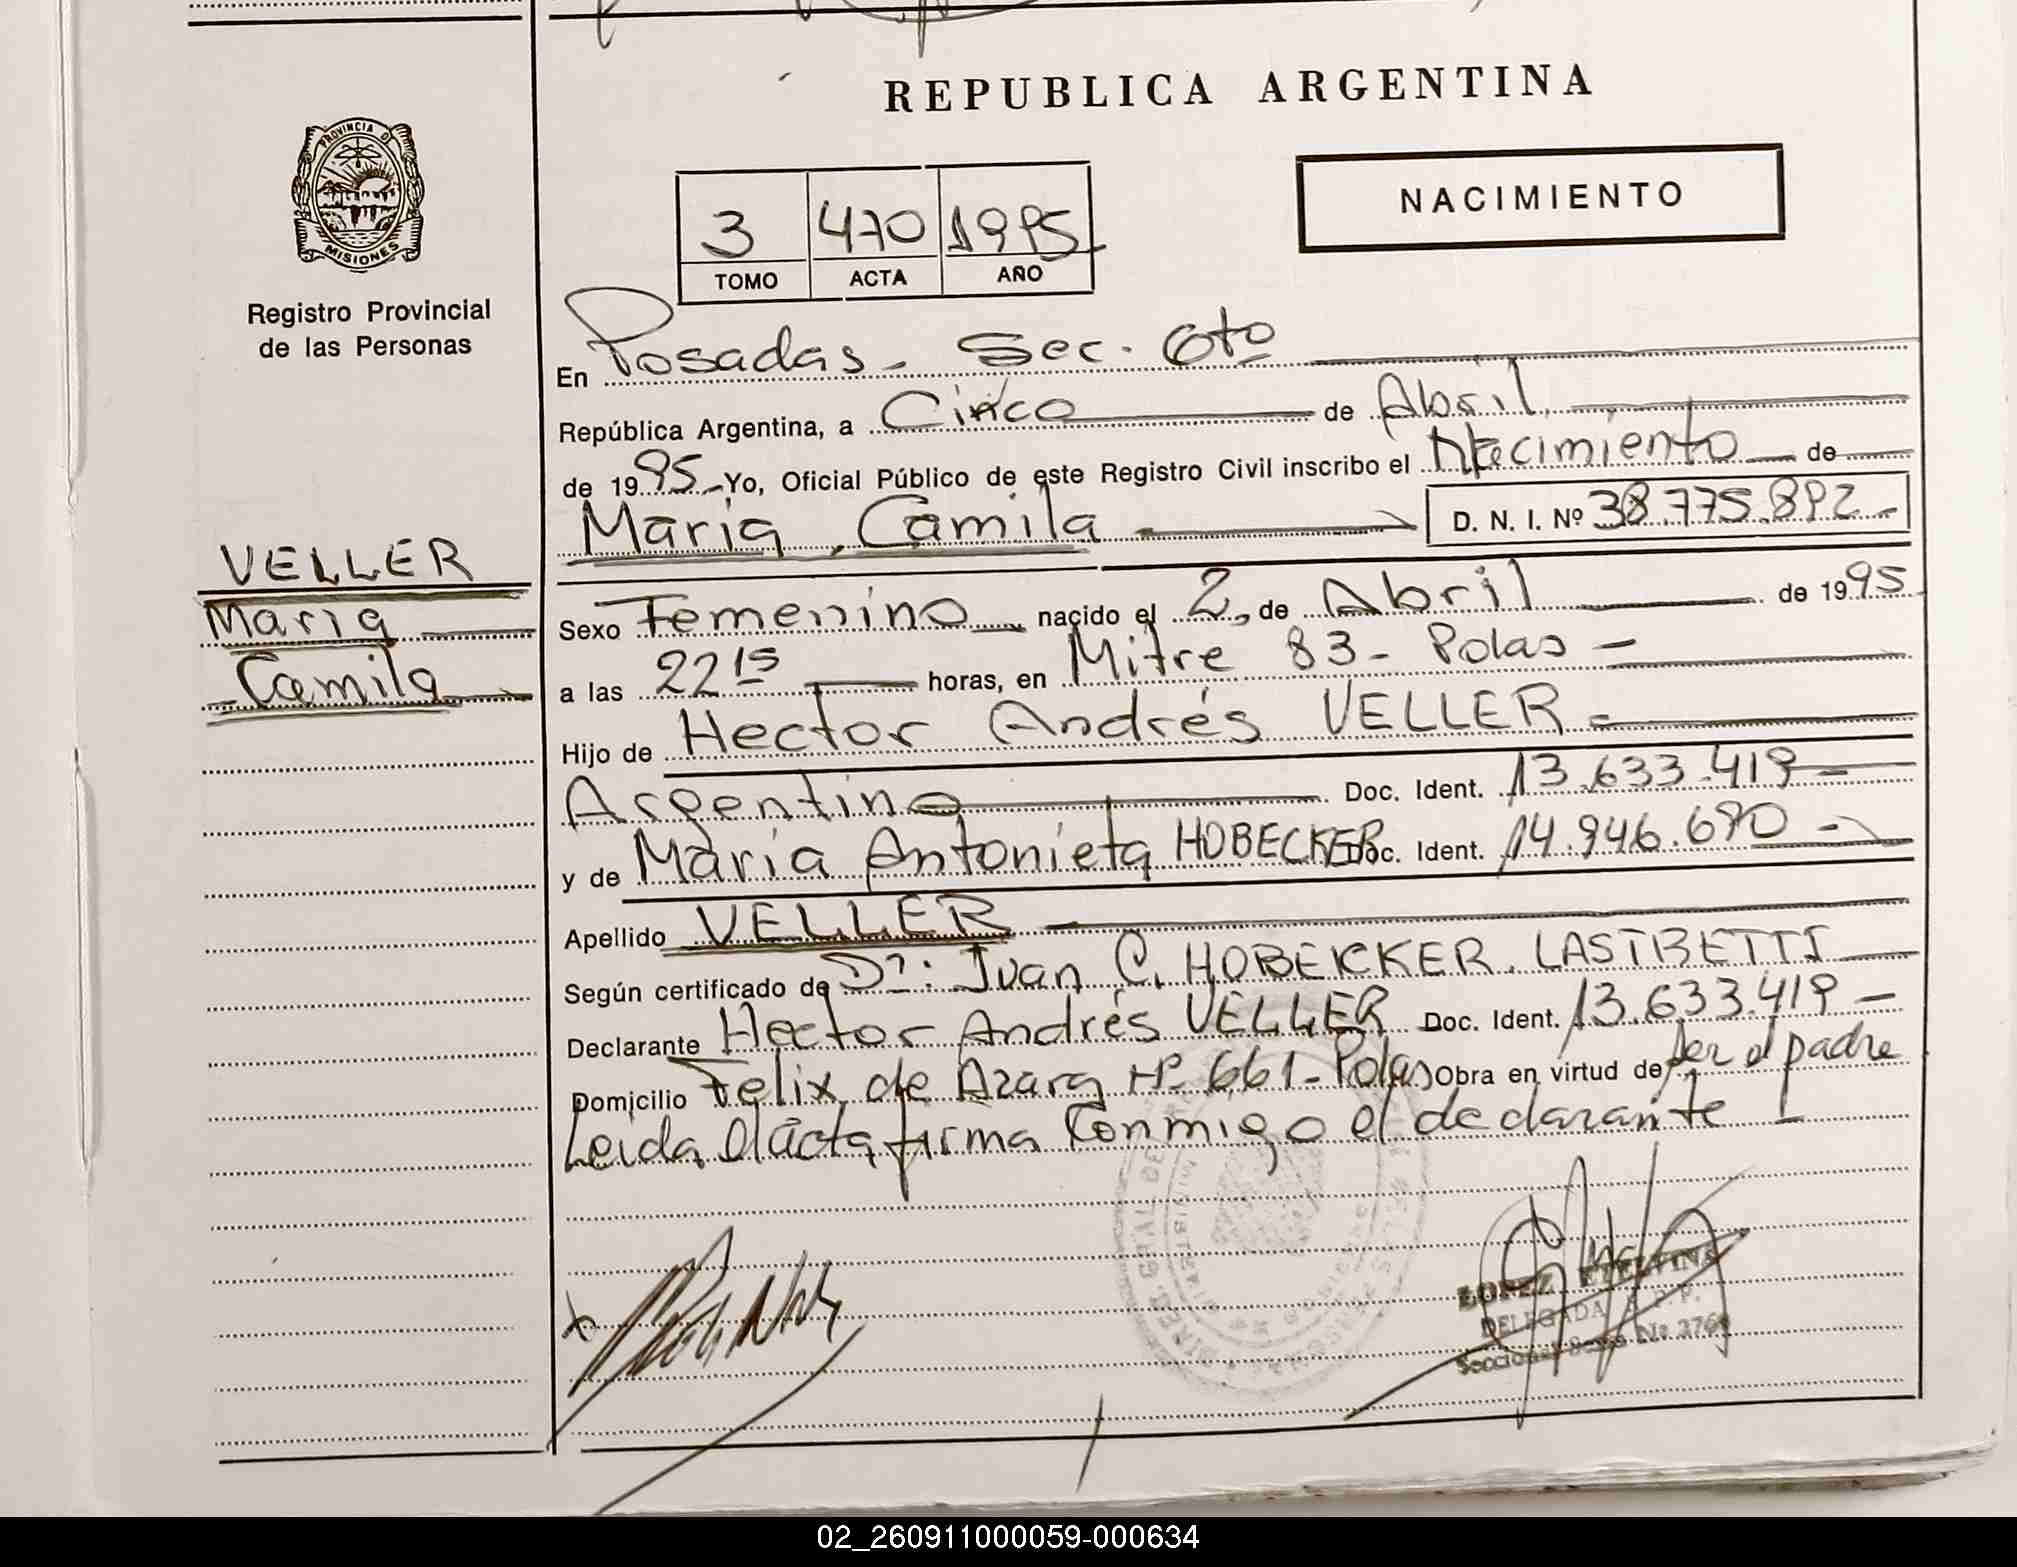 REPUBLICA ARGENTINA
PROVINCIA D
MISIONES
Registro Provincial
de las Personas
NACIMIENTO
3 470 1995
TOMO ACTA AÑO
En Posadas - Sec. 6to
República Argentina, a Cinco de Abril
de 1995 Yo, Oficial Público de este Registro Civil inscribo el Nacimiento de
Maria, Camila D. N. I. Nº 38.775.892
VELLER
Maria
Camila
Sexo Femenino nacido el 2 de Abril de 1995
a las 22 15 horas, en Mitre 83 - Pdas -
Hijo de Hector Andrés VELLER
Argentino Doc. Ident. 13.633.419
y de María Antonieta HOBECKER Doc. Ident. 14.946.690
Apellido VELLER
Según certificado de Dr: Juan C. HOBECKER
Declarante Hector Andrés VELLER Doc. Ident. 13.633.419
Domicilio Felix de Azara Nº 661 - Pdas Obra en virtud de ser el padre
Leida el acta firma conmigo el declarante
LOPEZ
DELEGADA R.P.P.
Seccional Sexta Nº 2760
02_260911000059-000634